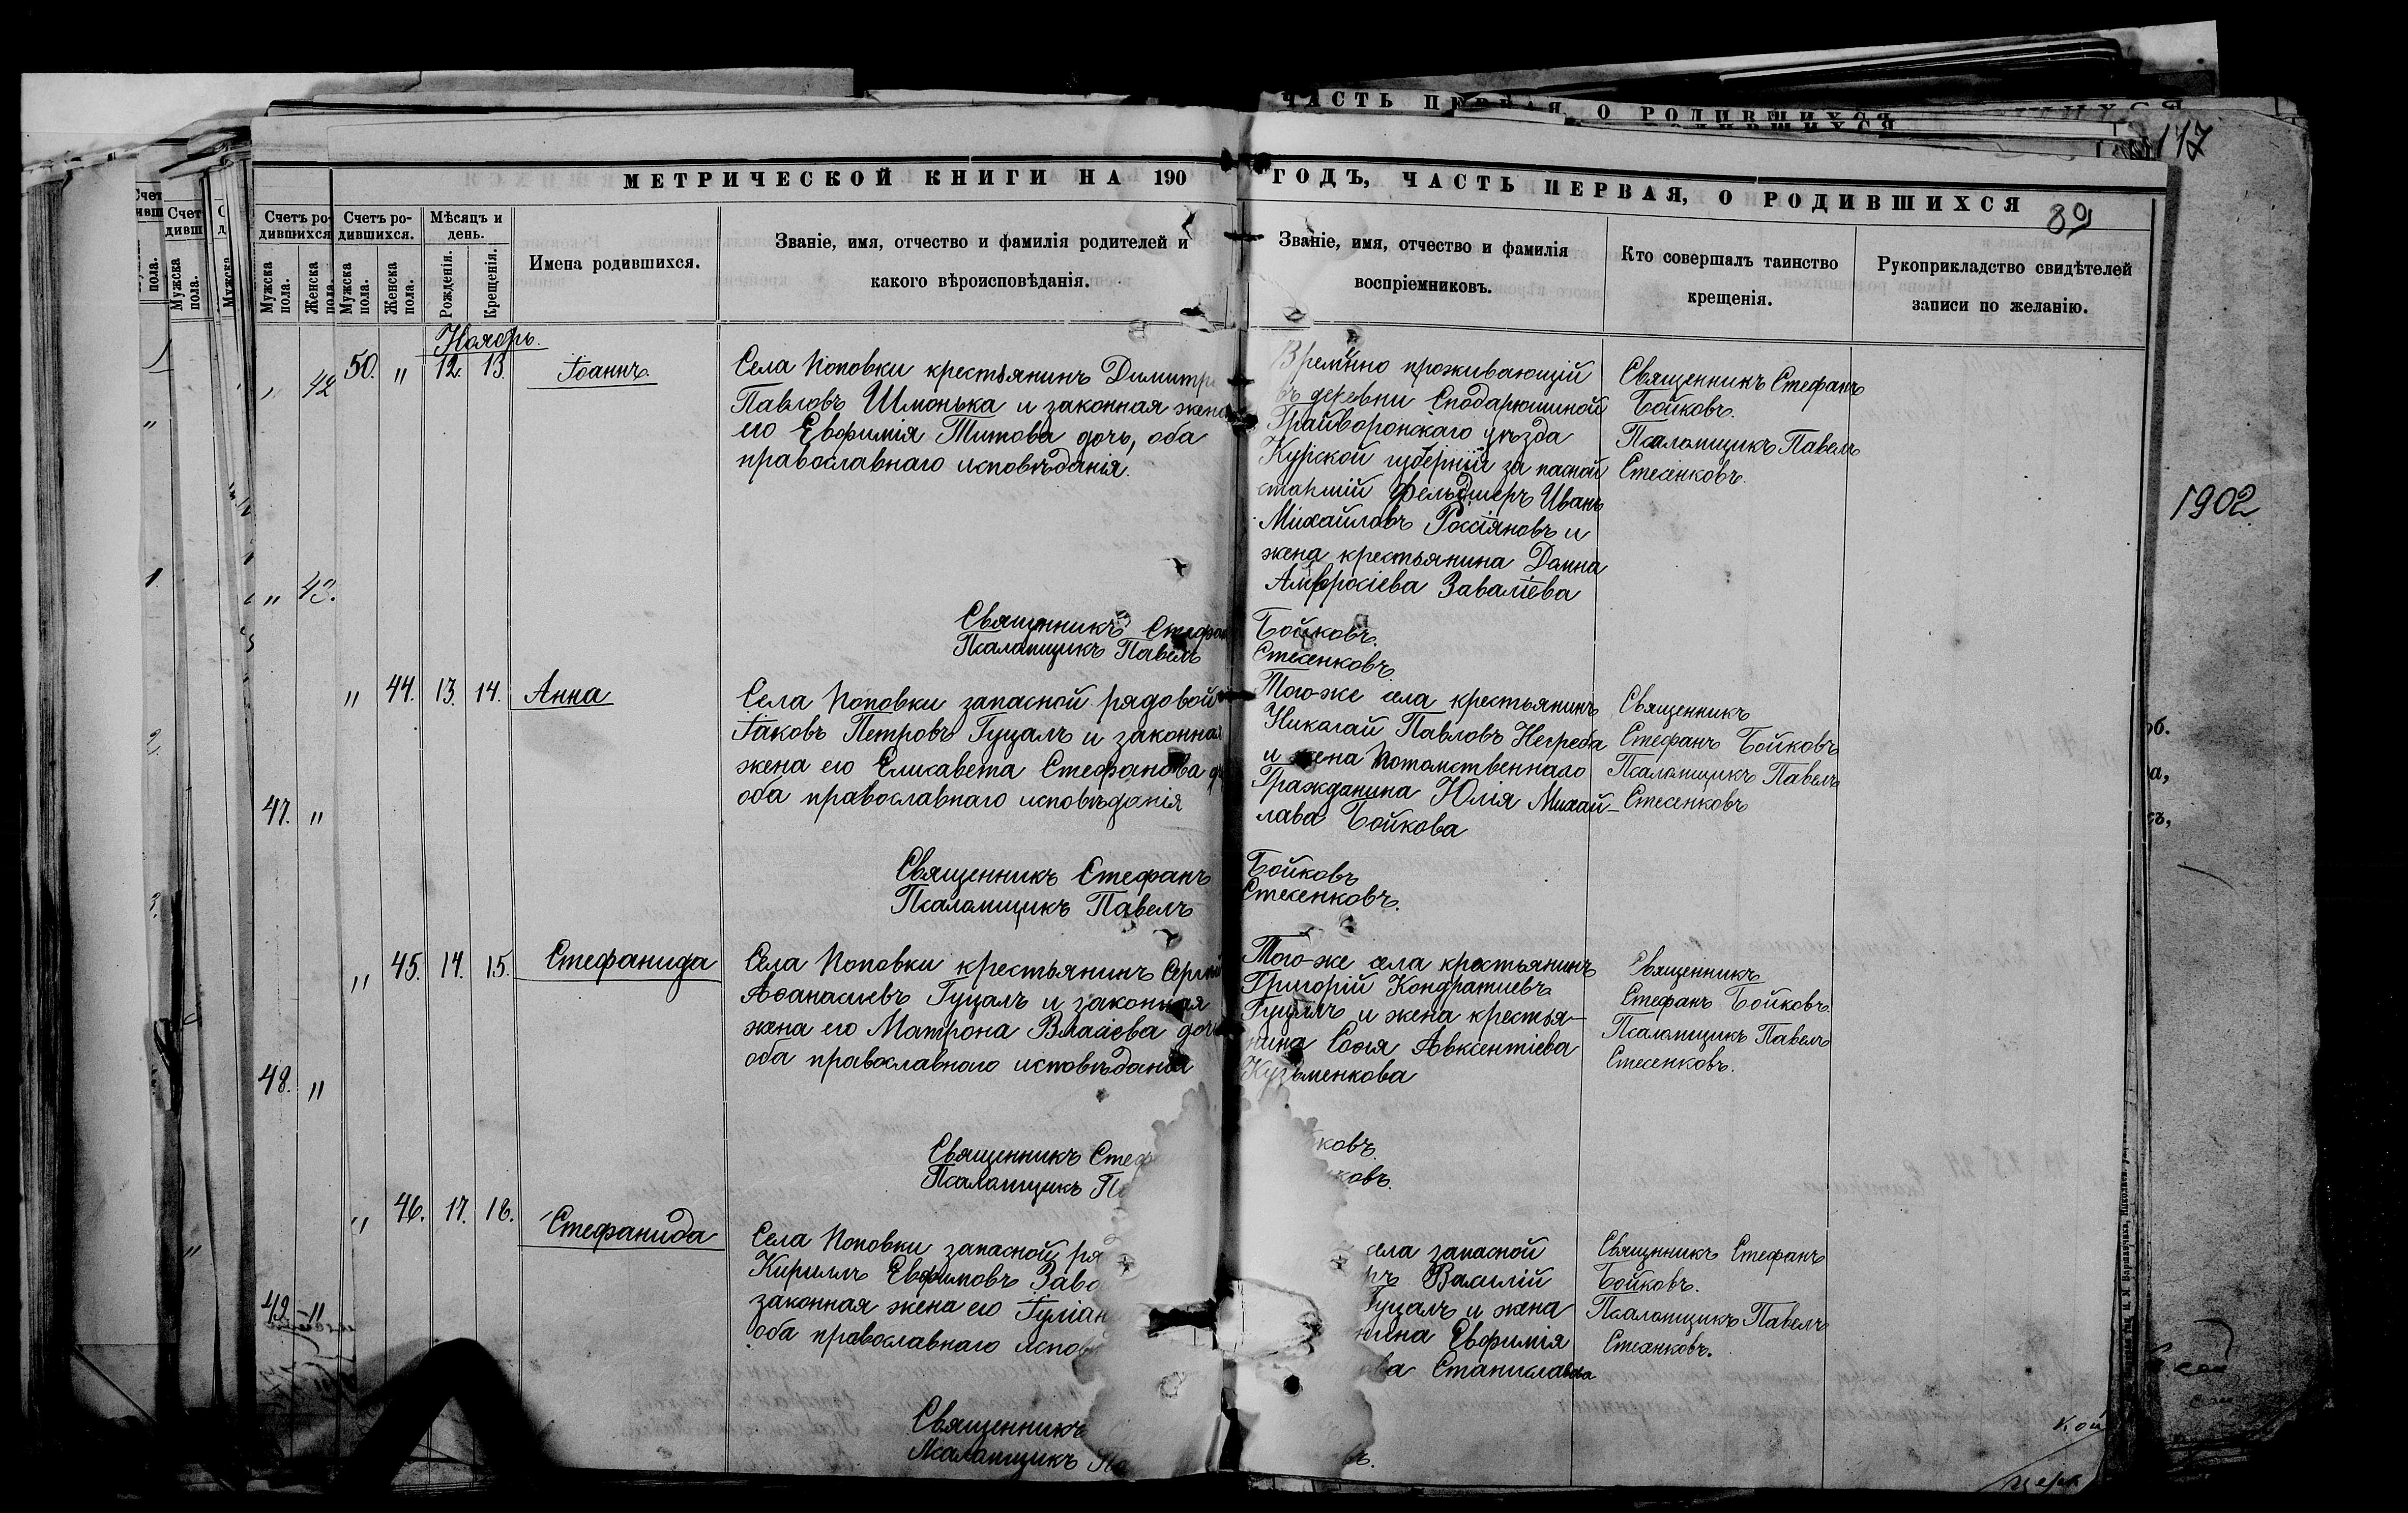 ЧАСТЬ ПЕРВАЯ, О РОДИВШИХСЯ
147
МЕТРИЧЕСКОЙ КНИГИ НА 190 ГОДЪ, ЧАСТЬ ПЕРВАЯ, О РОДИВШИХСЯ
89
Счетъ родившихся.
Мужска пола.
Женска пола.
Мѣсяцъ и день.
Рожденія.
Крещенія.
Имена родившихся.
Званіе, имя, отчество и фамилія родителей и
какого вѣроисповѣданія.
Званіе, имя, отчество и фамилія
воспріемниковъ.
Кто совершалъ таинство
крещенія.
Рукоприкладство свидѣтелей
записи по желанію.
1902
Ноябрь.
50. " 12. 13. Іоаннъ
Села Поповки крестьянинъ Димитрі
Павловъ Шмонька и законная жена
его Евфимія Титова дочь, оба
православнаго исповѣданія.
Времѣнно проживающій
въ деревни Сподарюшиной
Грайворонскаго уѣзда
Курской губерніи запасной
старшій фельдшеръ Иванъ
Михайловъ Россіяновъ и
жена крестьянина Домна
Амвросіева Заваліева
Священникъ Стефанъ
Бойковъ.
Псаломщикъ Павелъ
Стесенковъ.
Священникъ Стефан Бойковъ.
Псаломщикъ Павелъ Стесенковъ.
" 44. 13. 14. Анна
Села Поповки запасной рядовой
Іаковъ Петровъ Гуцалъ и законная
жена его Елисавета Стефанова
оба православнаго исповѣданія
Того-же села крестьянинъ
Николай Павловъ Негреба
и жена Потомственнаго
Гражданина Юлія Михай-
лова Бойкова
Священникъ
Стефанъ Бойковъ
Псаломщикъ Павелъ
Стесенковъ
Священникъ Стефанъ Бойковъ
Псаломщикъ Павелъ Стесенковъ.
" 45. 14. 15. Стефанида
Села Поповки крестьянинъ Сергій
Аѳанасіевъ Гуцалъ и законная
жена его Матрона Власіева доч
оба православнаго исповѣданія
Того-же села крестьянинъ
Григорій Кондратиевъ
Гуцалъ и жена крестья-
нина Софія Авксентіева
Кузьменкова
Священникъ
Стефанъ Бойковъ.
Псаломщикъ Павелъ
Стесенковъ.
Священникъ Стеф ковъ.
Псаломщикъ П ковъ.
" 46. 17. 18. Стефанида
Села Поповки запасной ря
Кириллъ Евфимовъ Заво
законная жена его Іуліан
оба православнаго испов
села запасной
ръ Василій
Гуцалъ и жена
нина Евфимія
ова Станиславова
Священникъ Стефанъ
Бойковъ.
Псаломщикъ Павелъ
Стесенковъ.
Священникъ
Псаломщикъ Па въ.
42
" 43.
47. "
48. "
49. "